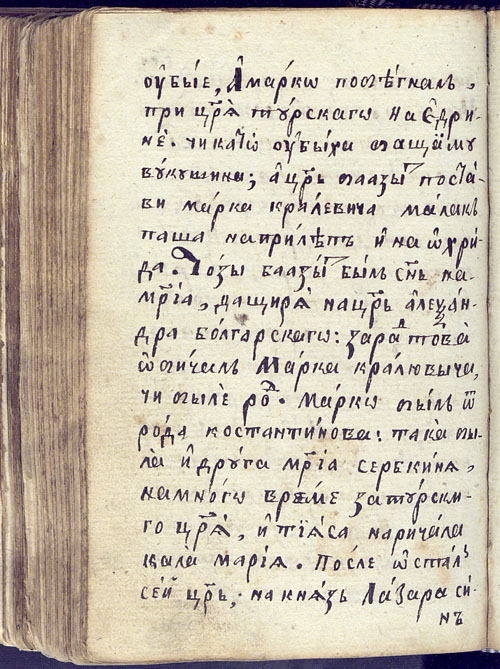 оубые, а марко побѣгналъ,
при цр҃ѧ турскаго на едри-
не. чи като оубиха бащѧму
вукушина; а цр҃ь баазы поста-
ви марка кралевича малакъ
паша наприлѣпъ и на ѡхри-
да. Този баазы былъ сн҃ъ на-
мр҃їа, дащирѧ нацр҃ь алеѯан-
дра болгарскаго: заради това
ѡбичалъ марка кралювыча,
чи былѐ род. марко былъ ѿ
рода костантинова: така бы-
ла и друга мр҃їа сербкинѧ,
намного време затурски-
го цр҃ѧ, и тїѧса наричала
кала марїѧ. После ѡсталъ
сей цр҃ь, на кнѧзь Лазара си-
нъ